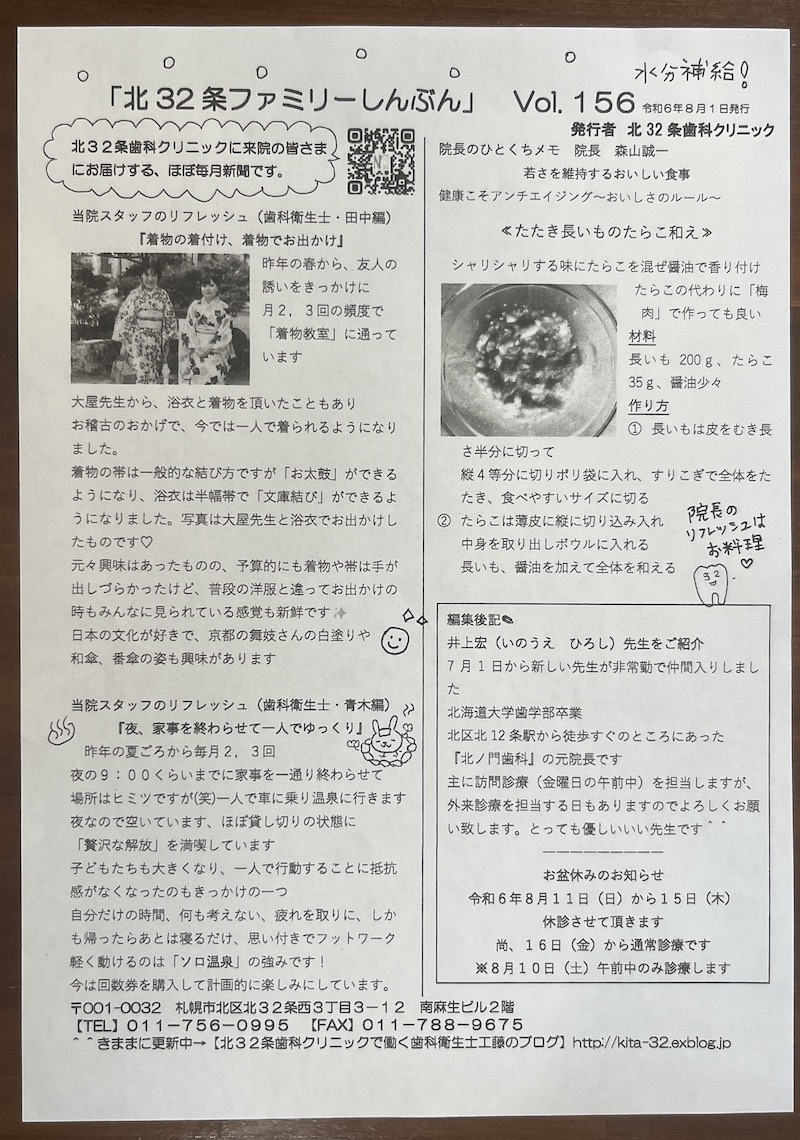 水分補給！
「北32条ファミリーしんぶん」　Vol. 156 令和6年8月1日発行
発行者　北32条歯科クリニック
北３２条歯科クリニックに来院の皆さま
にお届けする、ほぼ毎月新聞です。
当院スタッフのリフレッシュ（歯科衛生士・田中編）
『着物の着付け、着物でお出かけ』
昨年の春から、友人の
誘いをきっかけに
月２，３回の頻度で
「着物教室」に通って
います
大屋先生から、浴衣と着物を頂いたこともあり
お稽古のおかげで、今では一人で着られるようになり
ました。
着物の帯は一般的な結び方ですが「お太鼓」ができる
ようになり、浴衣は半幅帯で「文庫結び」ができるよ
うになりました。写真は大屋先生と浴衣でお出かけし
たものです♡
元々興味はあったものの、予算的にも着物や帯は手が
出しづらかったけど、普段の洋服と違ってお出かけの
時もみんなに見られている感覚も新鮮です✨
日本の文化が好きで、京都の舞妓さんの白塗りや
和傘、番傘の姿も興味があります
当院スタッフのリフレッシュ（歯科衛生士・青木編）
『夜、家事を終わらせて一人でゆっくり』
昨年の夏ごろから毎月２，３回
夜の９：００くらいまでに家事を一通り終わらせて
場所はヒミツですが(笑)一人で車に乗り温泉に行きます
夜なので空いています、ほぼ貸し切りの状態に
「贅沢な解放」を満喫しています
子どもたちも大きくなり、一人で行動することに抵抗
感がなくなったのもきっかけの一つ
自分だけの時間、何も考えない、疲れを取りに、しか
も帰ったらあとは寝るだけ、思い付きでフットワーク
軽く動けるのは「ソロ温泉」の強みです！
今は回数券を購入して計画的に楽しみにしています。
院長のひとくちメモ　院長　森山誠一
若さを維持するおいしい食事
健康こそアンチエイジング～おいしさのルール～
≪たたき長いものたらこ和え≫
シャリシャリする味にたらこを混ぜ醤油で香り付け
たらこの代わりに「梅
肉」で作っても良い
材料
長いも 200ｇ、たらこ
35ｇ、醤油少々
作り方
① 長いもは皮をむき長
さ半分に切って
縦４等分に切りポリ袋に入れ、すりこぎで全体をた
たき、食べやすいサイズに切る
② たらこは薄皮に縦に切り込み入れ
中身を取り出しボウルに入れる
長いも、醤油を加えて全体を和える
院長の
リフレッシュは
お料理
♡
32
編集後記✎
井上宏（いのうえ　ひろし）先生をご紹介
７月１日から新しい先生が非常勤で仲間入りしまし
た
北海道大学歯学部卒業
北区北12条駅から徒歩すぐのところにあった
『北ノ門歯科』の元院長です
主に訪問診療（金曜日の午前中）を担当しますが、
外来診療を担当する日もありますのでよろしくお願
い致します。とっても優しいいい先生です＾＾
――――――――――
お盆休みのお知らせ
令和６年８月１１日（日）から１５日（木）
休診させて頂きます
尚、１６日（金）から通常診療です
※８月１０日（土）午前中のみ診療します
〒001-0032　札幌市北区北３２条西３丁目３－１２　南麻生ビル２階
【TEL】011－756－0995　【FAX】011－788－9675
＾＾きままに更新中→【北３２条歯科クリニックで働く歯科衛生士工藤のブログ】http://kita-32.exblog.jp